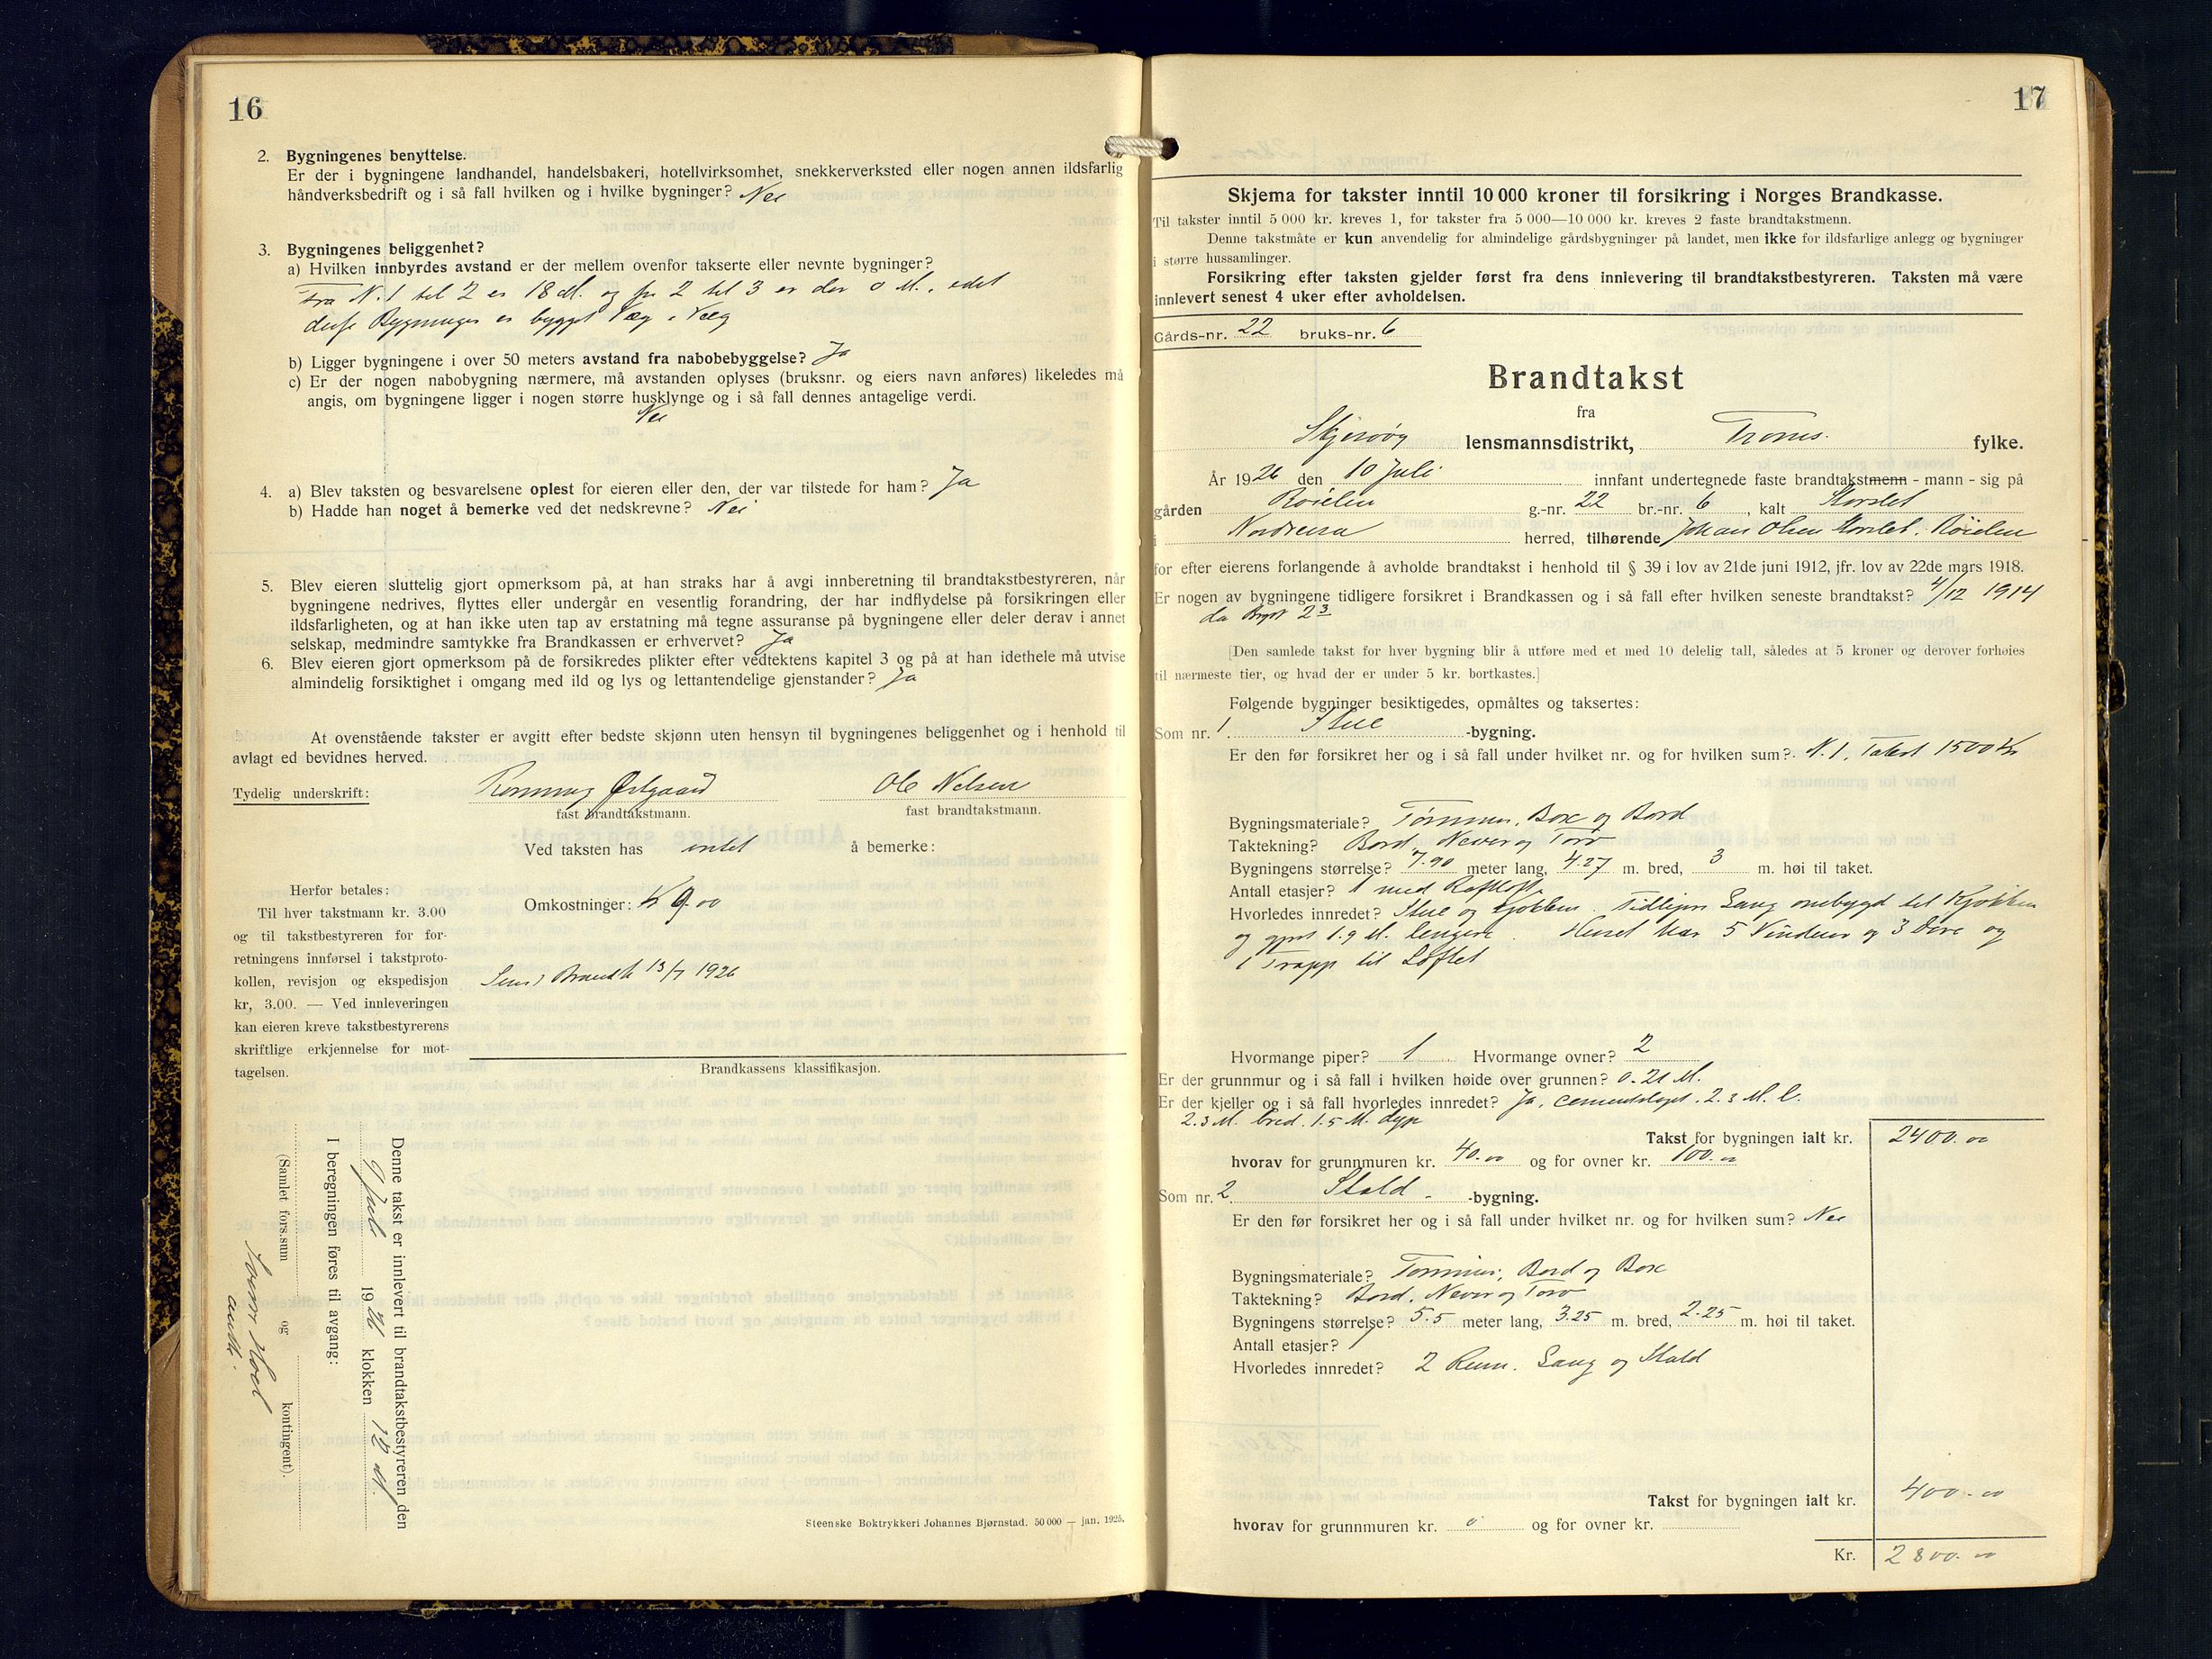 16
2. Bygningenes benyttelse.
Er der i bygningene landhandel, handelsbakeri, hotellvirksomhet, snekkerverksted eller nogen annen ildsfarlig
håndverksbedrift og i så fall hvilken og i hvilke bygninger? Nei
3. Bygningenes beliggenhet?
a) Hvilken innbyrdes avstand er der mellem ovenfor takserte eller nevnte bygninger?
Fra N. 1 til 2 er 18 M. og fra 2 til 3 er der 0 M., idet
disse Bygninger er bygget Væg i Væg
b) Ligger bygningene i over 50 meters avstand fra nabobebyggelse? Ja
c) Er der nogen nabobygning nærmere, må avstanden oplyses (bruksnr. og eiers navn anføres) likeledes må
angis, om bygningene ligger i nogen større husklynge og i så fall dennes antagelige verdi.
Nei
4. a) Blev taksten og besvarelsene oplest for eieren eller den, der var tilstede for ham? Ja
b) Hadde han noget å bemerke ved det nedskrevne? Nei
5. Blev eieren sluttelig gjort opmerksom på, at han straks har å avgi innberetning til brandtakstbestyreren, når
bygningene nedrives, flyttes eller undergår en vesentlig forandring, der har indflydelse på forsikringen eller
ildsfarligheten, og at han ikke uten tap av erstatning må tegne assuranse på bygningene eller deler derav i annet
selskap, medmindre samtykke fra Brandkassen er erhvervet? Ja
6. Blev eieren gjort opmerksom på de forsikredes plikter efter vedtektens kapitel 3 og på at han idethele må utvise
almindelig forsiktighet i omgang med ild og lys og lettantendelige gjenstander? Ja
At ovenstående takster er avgitt efter bedste skjønn uten hensyn til bygningenes beliggenhet og i henhold til
avlagt ed bevidnes herved.
Tydelig underskrift: Østgaard Ole Nelsen
fast brandtakstmann. fast brandtakstmann.
Ved taksten has intet å bemerke:
Herfor betales:
Til hver takstmann kr. 3.00
og til takstbestyreren for for-
retningens innførsel i takstproto-
kollen, revisjon og ekspedisjon
kr, 3.00. — Ved innleveringen
kan eieren kreve takstbestyrerens
skriftlige erkjennelse for mot-
tagelsen.
Omkostninger: Kr 9.00
Send Brandk 13/7 1926
Brandkassens klassifikasjon.
Denne takst er innlevert til brandtakstbestyreren den
9 Juli 1926 klokken 12 M.
I beregningen føres til avgang:
(Samlet fors.sum og kontingent).
Hoel
auth.
Steenske Boktrykkeri Johannes Bjørnstad. 50 000 — jan. 1925.
17
Skjema for takster inntil 10 000 kroner til forsikring i Norges Brandkasse.
Til takster inntil 5 000 kr. kreves 1, for takster fra 5 000—10 000 kr. kreves 2 faste brandtakstmenn.
Denne takstmåte er kun anvendelig for almindelige gårdsbygninger på landet, men ikke for ildsfarlige anlegg og bygninger
i større hussamlinger.
Forsikring efter taksten gjelder først fra dens innlevering til brandtakstbestyreren. Taksten må være
innlevert senest 4 uker efter avholdelsen.
Gårds-nr. 22 bruks-nr. 6
Brandtakst
fra
Skjervøy lensmannsdistrikt, Troms. fylke.
År 1926 den 10 Juli innfant undertegnede faste brandtakstmenn - mann - sig på
gården Røielen g.-nr. 22 br.-nr. 6, kalt Storslet
i Nordreisa herred, tilhørende Johan Olsen Storslet. Røielen
for efter eierens forlangende å avholde brandtakst i henhold til § 39 i lov av 21de juni 1912, jfr. lov av 22de mars 1918.
Er nogen av bygningene tidligere forsikret i Brandkassen og i så fall efter hvilken seneste brandtakst? 4/12 1914
[Den samlede takst for hver bygning blir å utføre med et med 10 delelig tall, således at 5 kroner og derover forhøies
til nærmeste tier, og hvad der er under 5 kr. bortkastes.]
Følgende bygninger besiktigedes, opmåltes og taksertes:
Som nr. 1. Stue -bygning.
Er den før forsikret her og i så fall under hvilket nr. og for hvilken sum? N. 1. Takst 1500 Kr
Bygningsmateriale? Tømmer, Box og Bord
Taktekning? Bord, Never og Torv
Bygningens størrelse? 7.90 meter lang, 4.27 m. bred, 3 m. høi til taket.
Antall etasjer? 1 med Rafloft.
Hvorledes innredet? Stue og Kjøkken. Tidligere Gang ombygd til Kjøkken
og gjort 1.9 M. lengere. Huset har 5 Vinduer og 3 Døre og
1 Trapp til Loftet
Hvormange piper? 1 Hvormange ovner? 2
Er der grunnmur og i så fall i hvilken høide over grunnen? 0.21 M.
Er der kjeller og i så fall hvorledes innredet? Ja, cementstøpt. 2.3 M. l.
2.3 M. bred. 1.5 M. dyp
Takst for bygningen ialt kr. 2400.00
hvorav for grunnmuren kr. 40.00 og for ovner kr. 100.00
Som nr. 2. Stald -bygning.
Er den før forsikret her og i så fall under hvilket nr. og for hvilken sum? Nei
Bygningsmateriale? Tømmer, Bord og Box
Taktekning? Bord, Never og Torv
Bygningens størrelse? 5.5 meter lang, 3.25 m. bred, 2.25 m. høi til taket.
Antall etasjer? 1
Hvorledes innredet? 2 Rum. Gang og Stald
Takst for bygningen ialt kr. 400.00
hvorav for grunnmuren kr. 0 og for ovner kr.
Kr. 2800.00